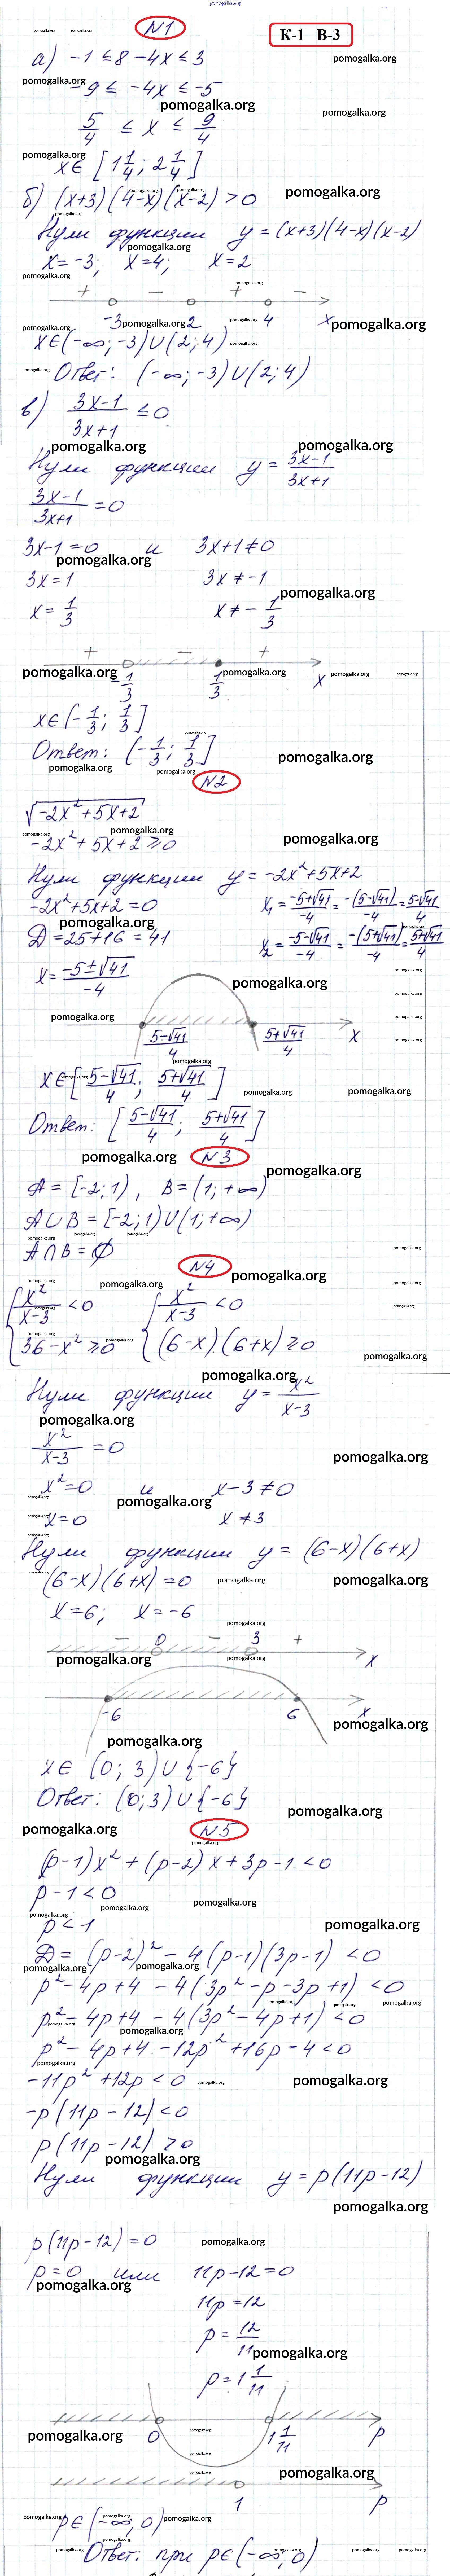 pomogalka.org
N1
К-1 В-3
а) -1 ≤ 8 - 4x ≤ 3
-9 ≤ -4x ≤ -5
5/4 ≤ x ≤ 9/4
x∈ [1 1/4; 2 1/4]
б) (x+3)(4-x)(x-2) > 0
Нули функции y = (x+3)(4-x)(x-2)
x = -3; x = 4; x = 2
+ - + -
-3 2 4 x
x∈(-∞; -3)∪(2; 4)
Ответ: (-∞; -3)∪(2; 4)
в) (3x-1)/(3x+1) ≤ 0
Нули функции y = (3x-1)/(3x+1)
(3x-1)/(3x+1) = 0
3x-1 = 0 и 3x+1 ≠ 0
3x = 1 3x ≠ -1
x = 1/3 x ≠ - 1/3
+ - +
-1/3 1/3 x
x∈(-1/3; 1/3]
Ответ: (-1/3; 1/3]
N2
√(-2x² + 5x + 2)
-2x² + 5x + 2 ≥ 0
Нули функции y = -2x² + 5x + 2
-2x² + 5x + 2 = 0 x₁ = (-5+√41)/-4 = -(5-√41)/-4 = (5-√41)/4
D = 25 + 16 = 41 x₂ = (-5-√41)/-4 = -(5+√41)/-4 = (5+√41)/4
x = (-5±√41)/-4
(5-√41)/4 (5+√41)/4 x
x∈[(5-√41)/4; (5+√41)/4]
Ответ: [(5-√41)/4; (5+√41)/4]
N3
A = [-2; 1), B = (1; +∞)
A∪B = [-2; 1)∪(1; +∞)
A∩B = ∅
N4
{ x²/(x-3) < 0 { x²/(x-3) < 0
{ 36 - x² ≥ 0 { (6-x)(6+x) ≥ 0
Нули функции y = x²/(x-3)
x²/(x-3) = 0
x² = 0 и x-3 ≠ 0
x = 0 x ≠ 3
Нули функции y = (6-x)(6+x)
(6-x)(6+x) = 0
x = 6; x = -6
- 0 - 3 +
x
-6 6 x
x∈ (0; 3)∪{-6}
Ответ: (0; 3)∪{-6}
N5
(p-1)x² + (p-2)x + 3p-1 < 0
p-1 < 0
p < 1
D = (p-2)² - 4(p-1)(3p-1) < 0
p² - 4p + 4 - 4(3p² - p - 3p + 1) < 0
p² - 4p + 4 - 4(3p² - 4p + 1) < 0
p² - 4p + 4 - 12p² + 16p - 4 < 0
-11p² + 12p < 0
-p(11p - 12) < 0
p(11p - 12) > 0
Нули функции y = p(11p-12)
p(11p-12) = 0
p = 0 или 11p-12 = 0
11p = 12
p = 12/11
p = 1 1/11
0 1 1/11 p
1 p
p∈(-∞, 0)
Ответ: при p∈(-∞, 0)